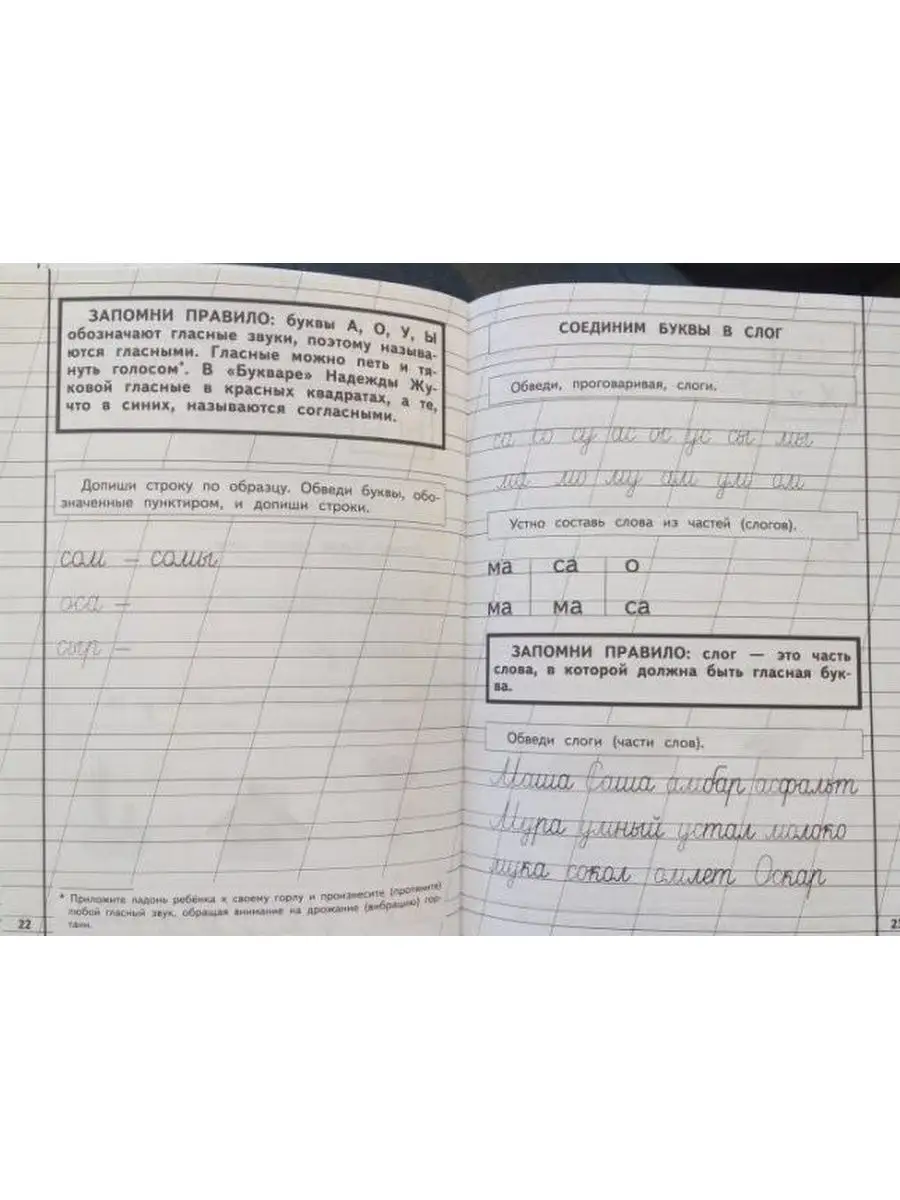 ЗАПОМНИ ПРАВИЛО: буквы А, О, У, Ы
обозначают гласные звуки, поэтому называ-
ются гласными. Гласные можно петь и тя-
нуть голосом*. В «Букваре» Надежды Жу-
ковой гласные в красных квадратах, а те,
что в синих, называются согласными.
Допиши строку по образцу. Обведи буквы, обо-
значенные пунктиром, и допиши строки.
сом – сомы
оса –
сыр –
* Приложите ладонь ребёнка к своему горлу и произнесите (протяните)
любой гласный звук, обращая внимание на дрожание (вибрацию) гор-
тани.
22
СОЕДИНИМ БУКВЫ В СЛОГ
Обведи, проговаривая, слоги.
са со су ас ос ус сы мы
ма мо му ам ум ам
Устно составь слова из частей (слогов).
ма са о
ма ма са
ЗАПОМНИ ПРАВИЛО: слог — это часть
слова, в которой должна быть гласная бук-
ва.
Обведи слоги (части слов).
Маша Саша амбар асфальт
Мура умный устал молоко
мука сокол омлет Оскар